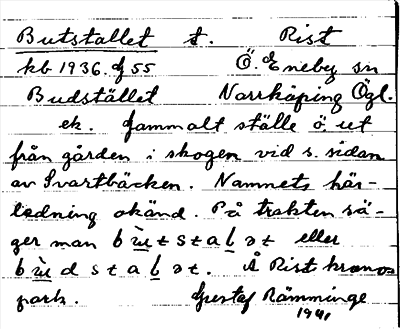 Butstallet t. Rist
kb 1936. Jf 55 Ö. Eneby sn
Budstället Norrköping Ögl.
ek. Gammalt ställe ö. ut
från gården i skogen vid s. sidan
av Svartbäcken. Namnets här-
ledning okänd. På trakten sä-
ger man bùtstaḷət eller
bùdstaḷət. Å Rist krono-
park. Gustaf Rämminge
1941